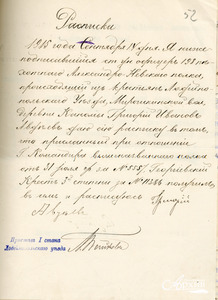 52
Расписка
1915 года Сентября 14 дня. Я ниже
подписавшийся ст. ун. офицер 131 пе-
хотного Александро-Невского полка,
происходящий из крестьян Лодейно-
польского уезда, Мирошкинской вол.
деревни Григорий Иванов
даю сию расписку в том,
что присланный при отношении
Г. Командира вышеназванного полка
от 31 июля за № Георгиевский
Крест 3ей степени за № получил,
в чем и расписуюсь Григорий
Пристав 1 стана
Лодейнопольского уезда